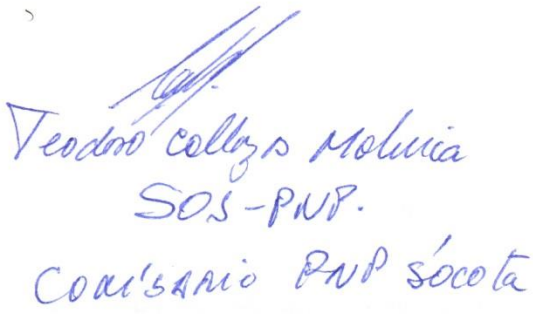 Teodoro Collazos Molina
SOS-PNP.
Comisario PNP Sócota